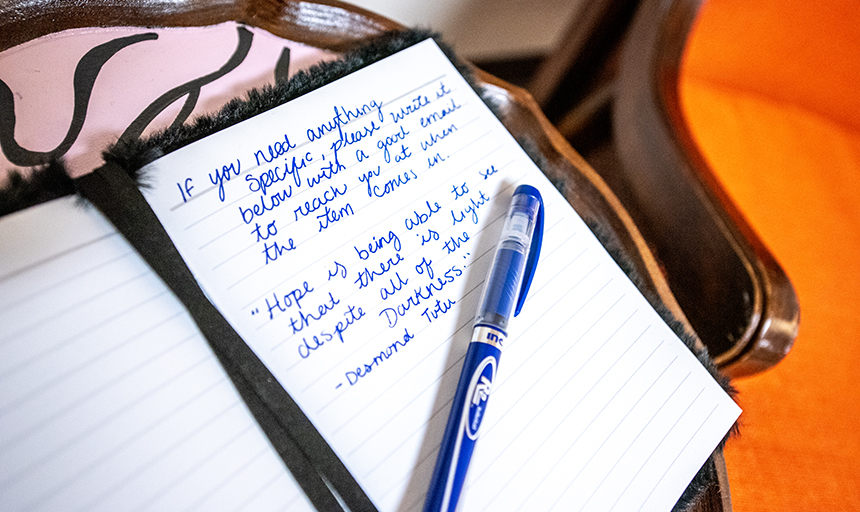 If you need anything
specific, please write it
below with a good email
to reach you at when
the item comes in.
"Hope is being able to see
that there is light
despite all of the
Darkness."
- Desmond Tutu
INC
R2